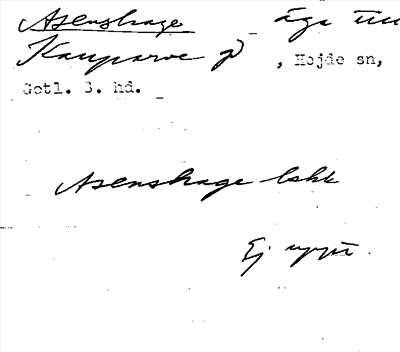 Asenshage äga till
Kauparve g , Hejde sn,
Gotl. S. hd.
Asenshage lskk
Ej uppt.